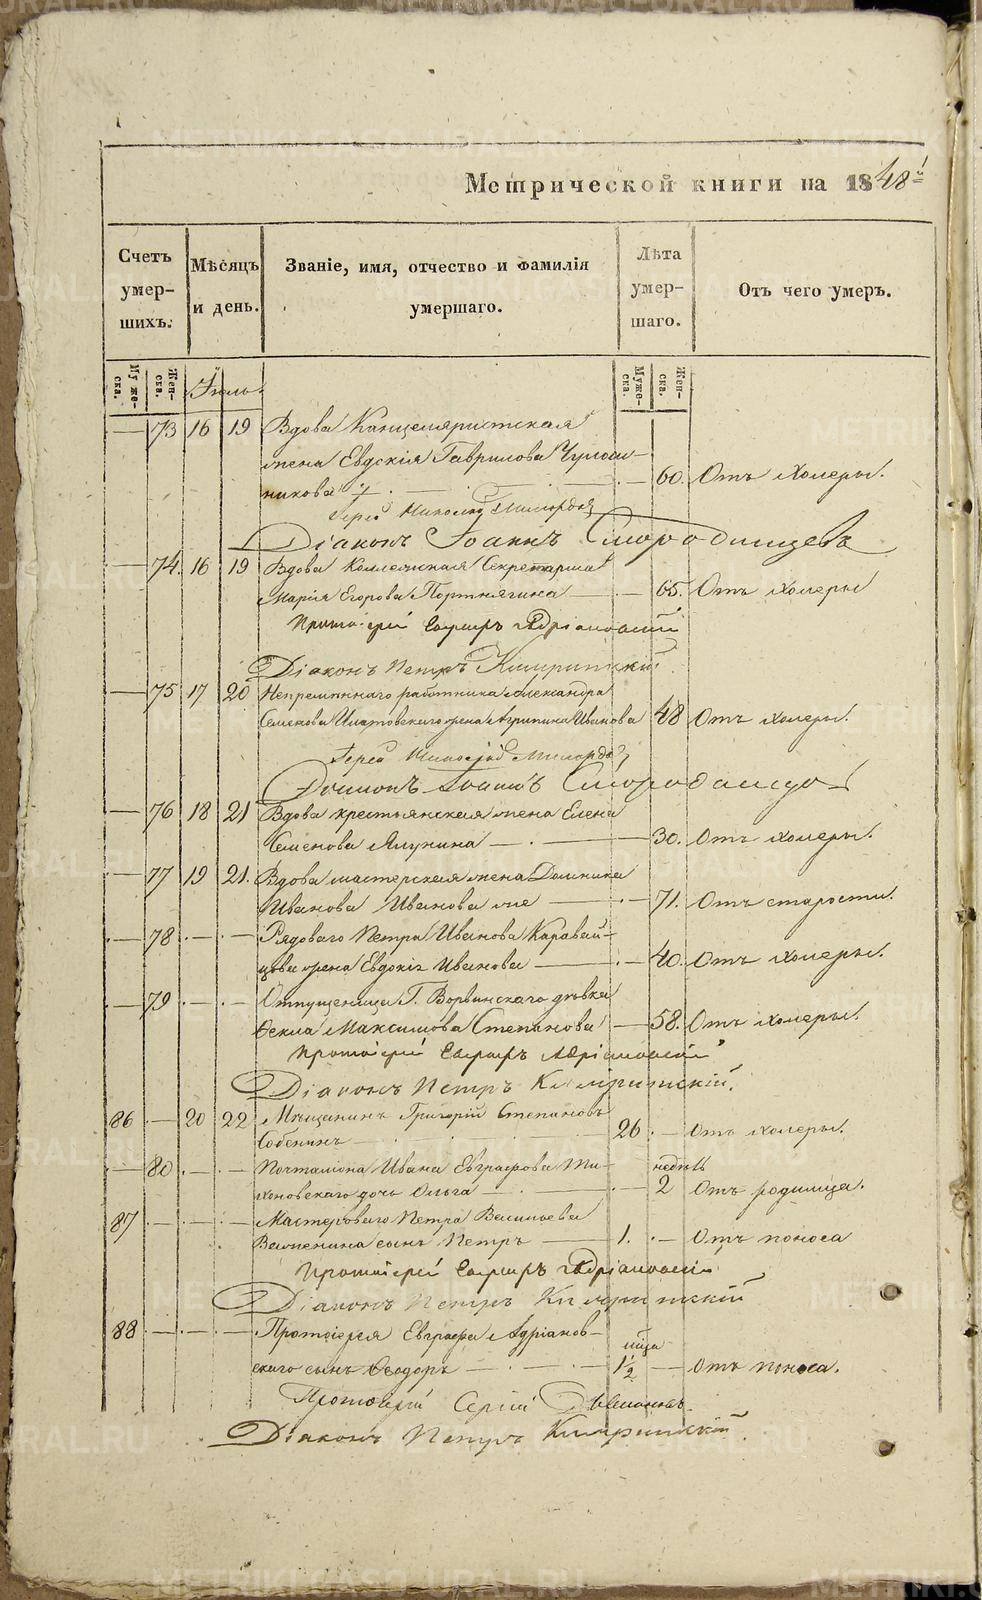 Метрической книги на 1848й
Счетъ умер-шихъ.
Мѣсяцъ и день.
Званіе, имя, отчество и фамилія умершаго.
Лѣта умер-шаго.
Отъ чего умеръ.
Муже-ска. Жен-ска. Іюль. Муже-ска. Жен-ска.
73 16 19 Вдова Канцеляристская
жена Евдокія Гаврилова
никова 60. Отъ холеры.
Іерей Николай
Діаконъ Іоаннъ Смородинцевъ
74. 16 19 Вдова Коллежская Секретарша
Марія Егорова Портнягина 65. Отъ холеры
Протоіерей Евграфъ Адріановскій
Діаконъ Петръ
75 17 20 Непремѣннаго работника Александра
Семенова жена Агрипина Иванова 48 Отъ холеры.
Іерей Николай
Діаконъ Іоаннъ Смородинцевъ
76 18 21 Вдова крестьянская жена Елена
Семенова Ялунина 30. Отъ холеры.
77 19 21. Вдова мастерская жена Домника
Иванова Иванова же 71. Отъ старости.
78 Рядоваго Петра Иванова Каравай-
цова жена Евдокія Иванова 40. Отъ холеры.
79 Отпущеница Г. дѣвка
Ѳекла Максимова Степанова 58. Отъ холеры.
Протоіерей Евграфъ Адріановскій
Діаконъ Петръ
86 20 22 Мѣщанинъ Григорій Степановъ
Собенинъ 26 Отъ холеры.
80 Почталіона Ивана Евграфова Ти-
хоновскаго дочь Ольга недѣль 2 Отъ родимца.
87 Мастероваго Петра Васильева
сынъ Петръ 1. Отъ поноса
Протоіерей Евграфъ Адріановскій
Діаконъ Петръ
88 Протоіерея Евграфа Адріанов-
скаго сынъ Ѳеодоръ 1½ Отъ поноса.
Протоіерей Сергій
Діаконъ Петръ
METRIKI.GASO-URAL.RU